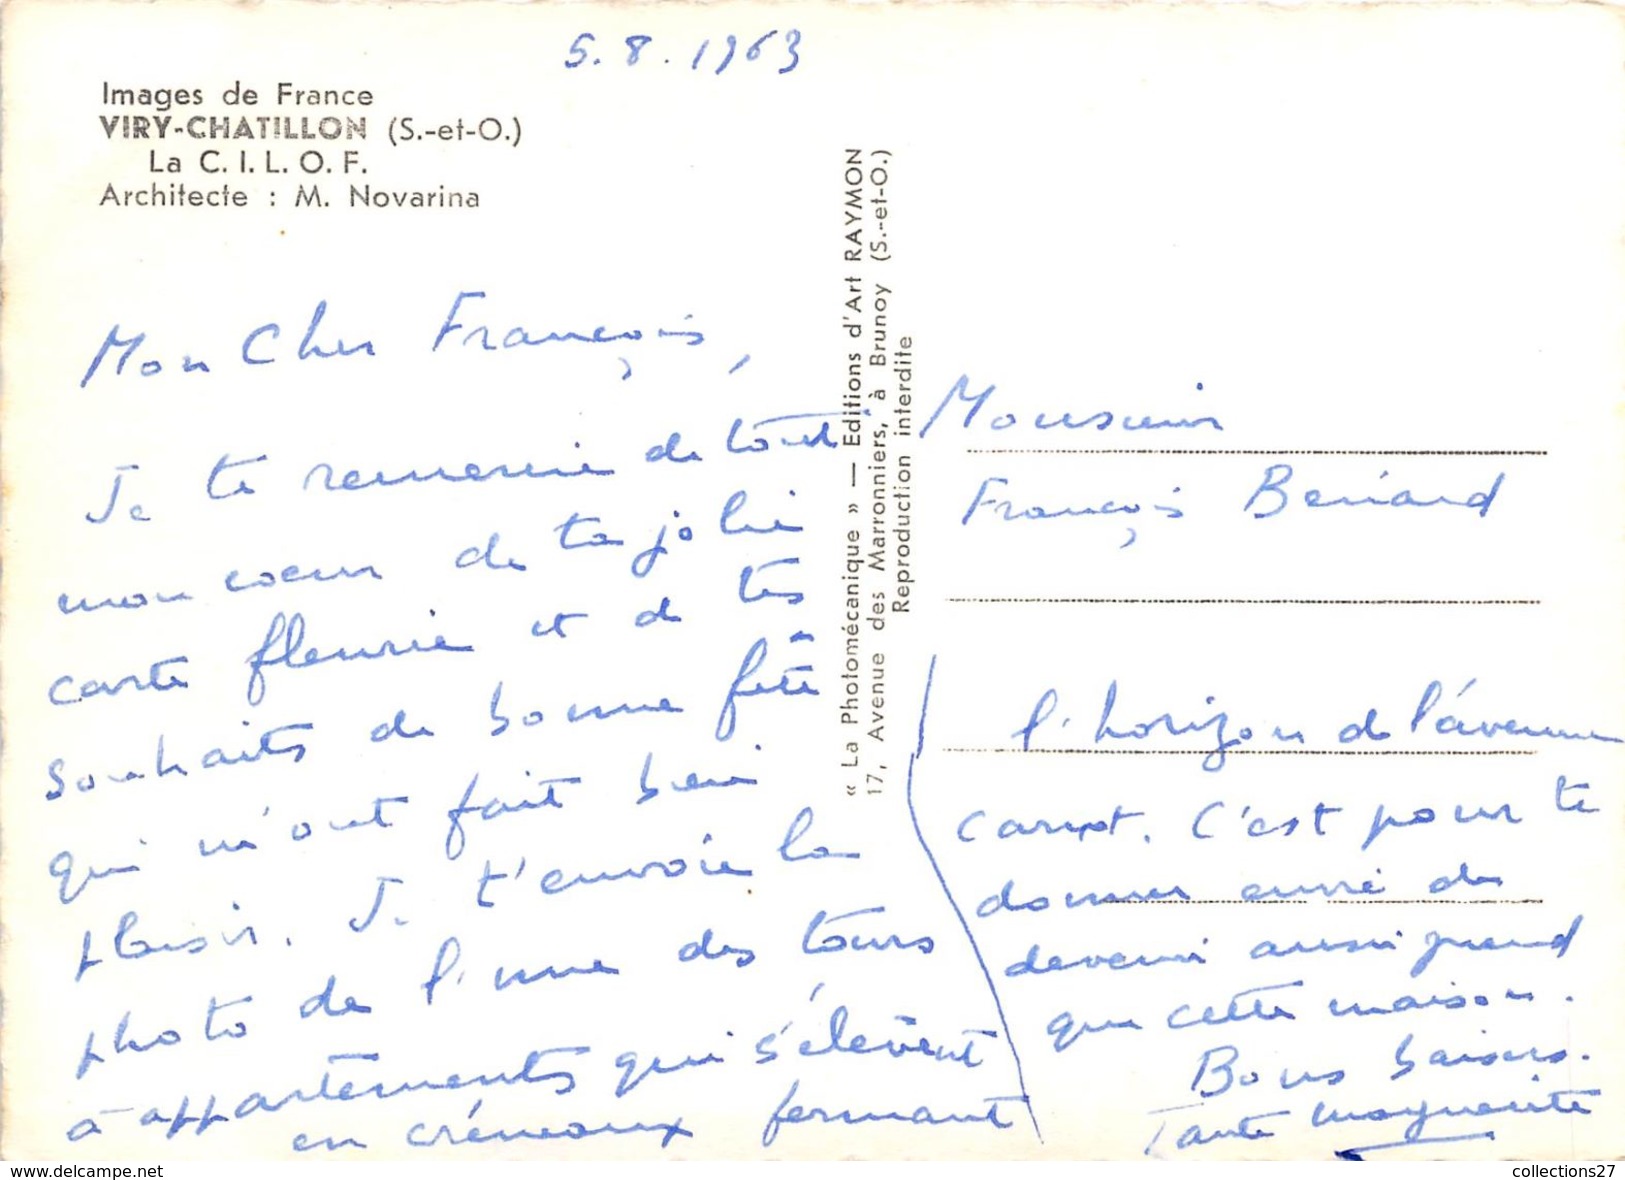 5.8.1963
Images de France
VIRY-CHATILLON (S.-et-O.)
La C.I.L.O.F.
Architecte : M. Novarina
Mon Cher François,
Je te remercie de tout
mon coeur de ta jolie
carte fleurie et de tes
souhaits de bonne fête
qui m'ont fait bien
plaisir. Je t'envoie la
photo de l'une des tours
à appartements qui s'élèvent
en créneaux fermant
« La Photomécanique » — Editions d'Art RAYMON
17, Avenue des Marronniers, à Brunoy (S.-et-O.)
Reproduction interdite
Monsieur
François Benard
l'horizon de l'avenue
Carnot. C'est pour te
donner envie de
devenir aussi grand
que cette maison.
Bons baisers.
Tante Marguerite
collections27